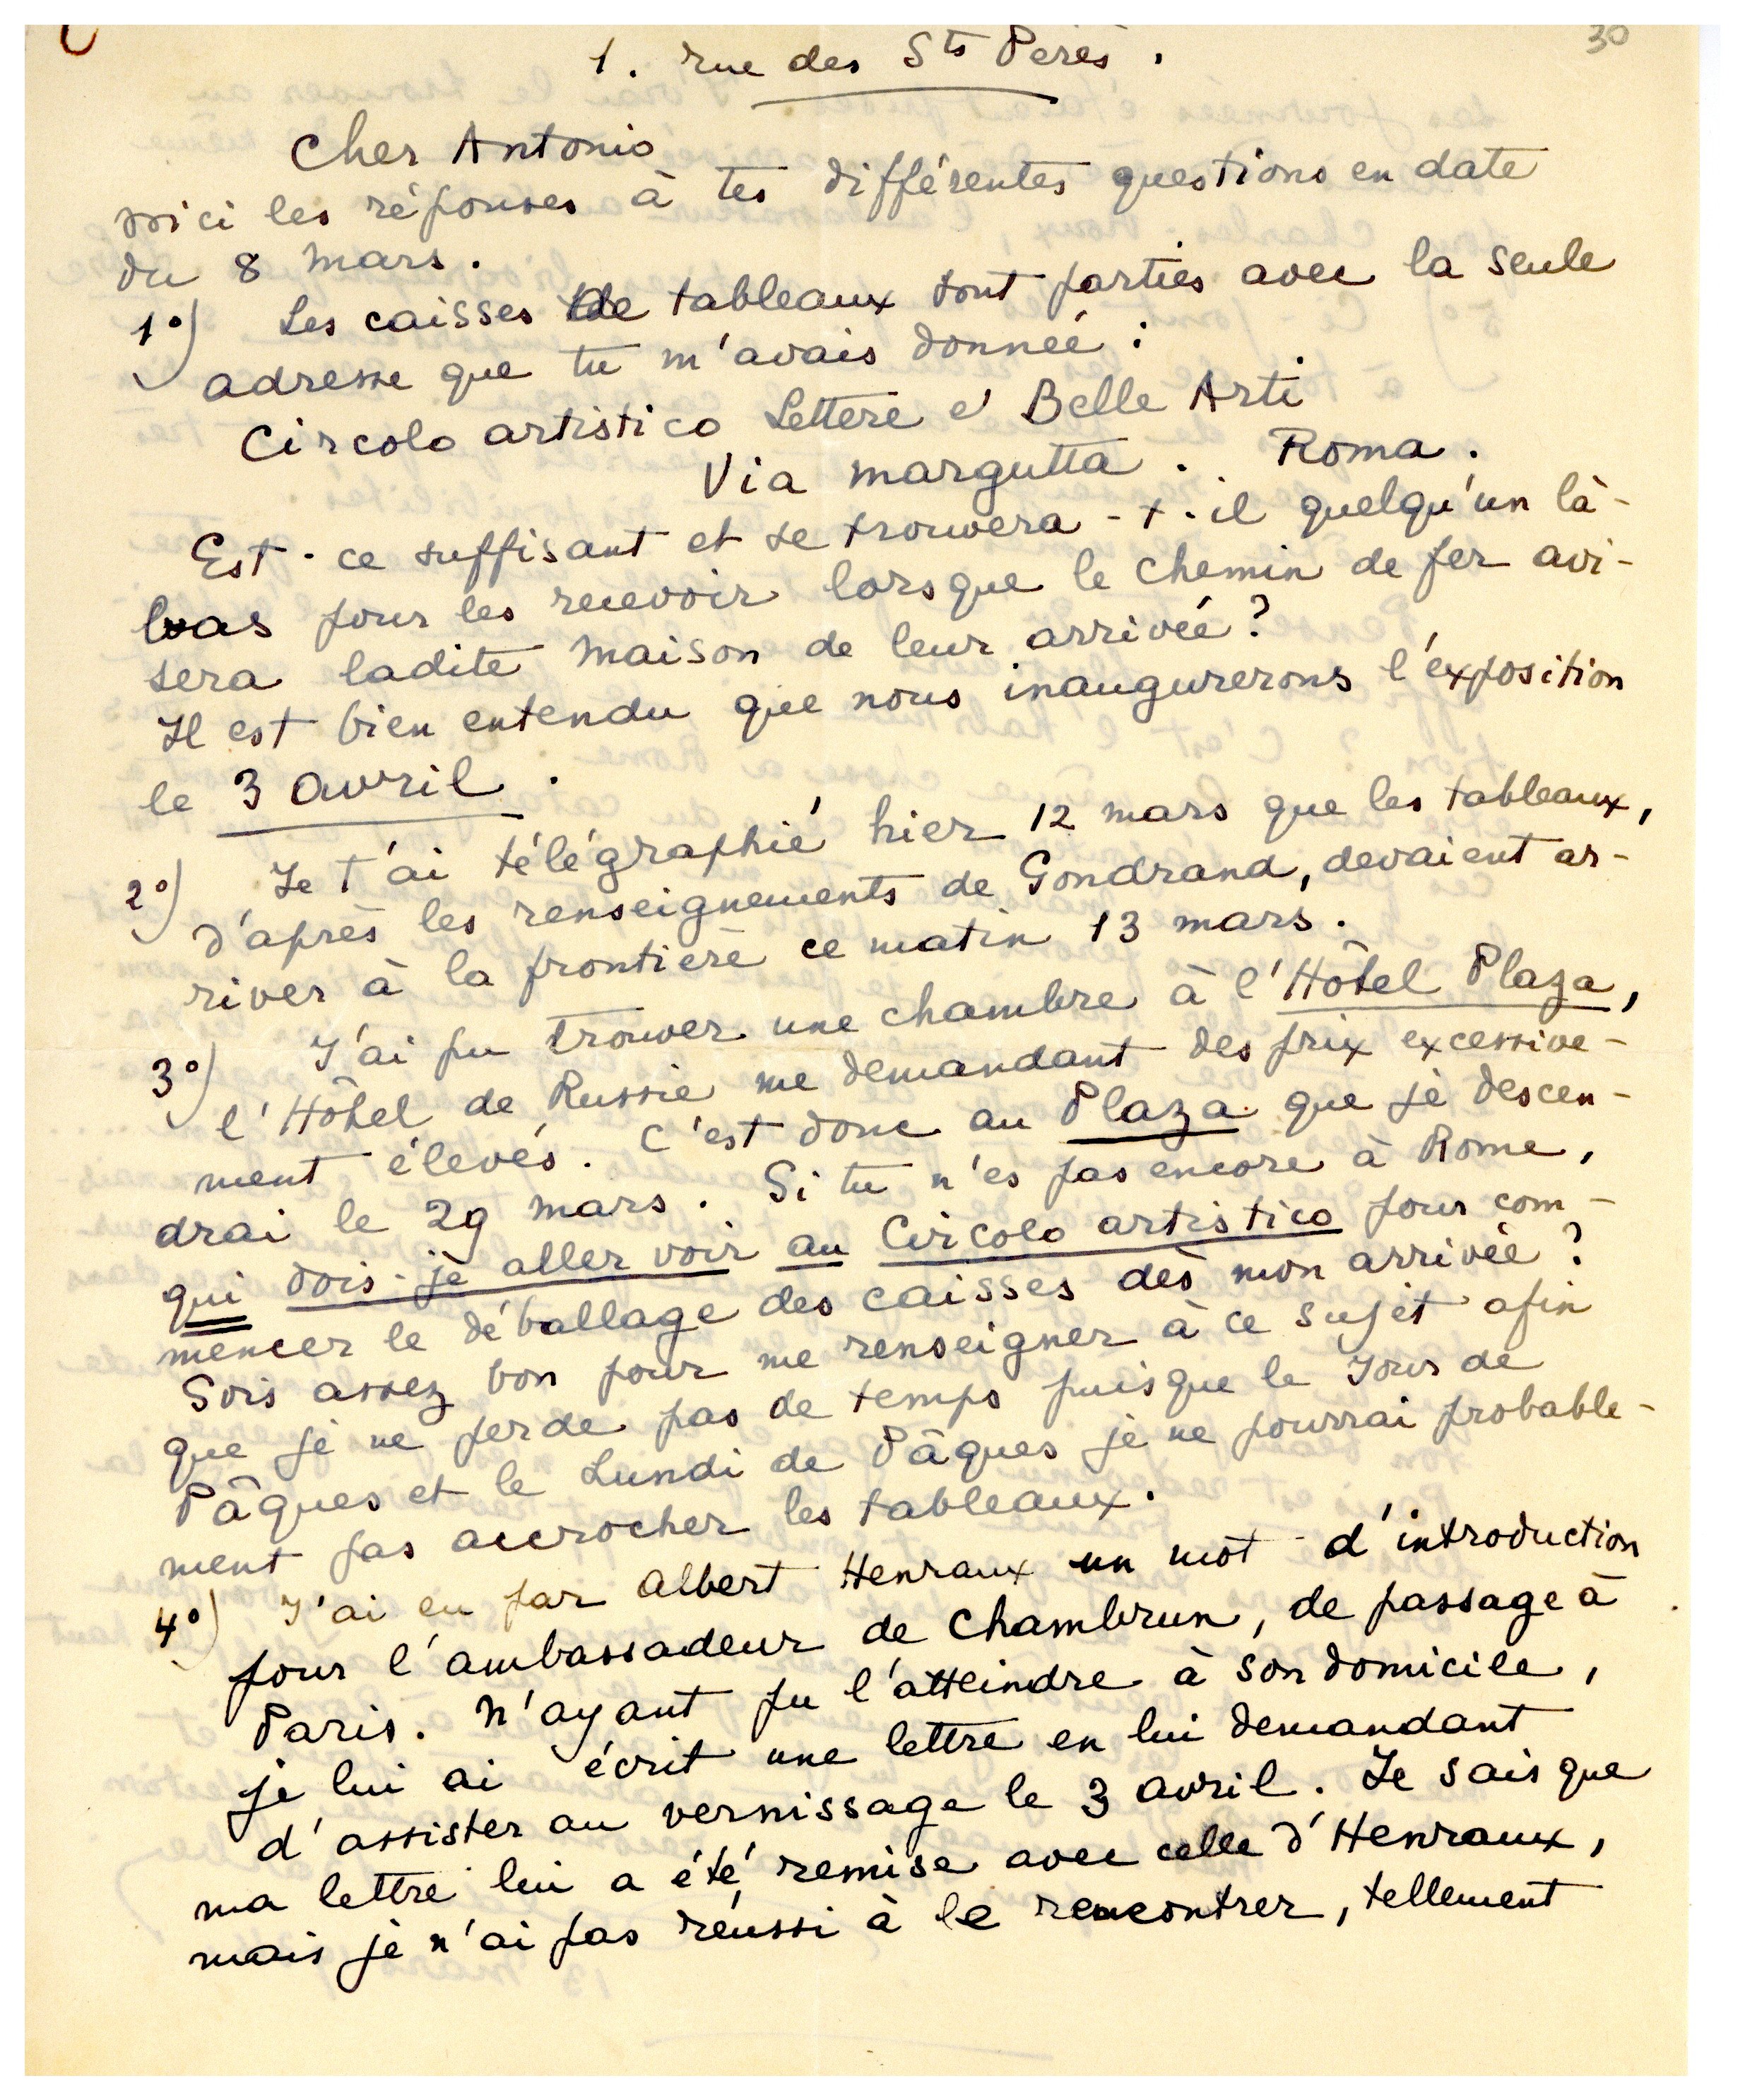 30
1. rue des Sts Pères.
Cher Antonio
voici les réponses à tes différentes questions en date
du 8 mars.
1°) Les caisses de tableaux sont parties avec la seule
adresse que tu m'avais donnée :
Circolo artistico Lettere e Belle Arti
Via margutta. Roma.
Est-ce suffisant et se trouvera-t-il quelqu'un là-
bas pour les recevoir lorsque le chemin de fer avi-
sera ladite maison de leur arrivée?
Il est bien entendu que nous inaugurerons l'exposition
le 3 avril.
2°) Je t'ai télégraphié hier 12 mars que les tableaux,
d'après les renseignements de Gondrand, devaient ar-
river à la frontière ce matin 13 mars.
3°) J'ai pu trouver une chambre à l'Hôtel Plaza,
l'Hôtel de Russie me demandant des prix excessive-
ment élevés. C'est donc au Plaza que je descen-
drai le 29 mars. Si tu n'es pas encore à Rome,
qui dois-je aller voir au Circolo artistico pour com-
mencer le déballage des caisses dès mon arrivée?
Sois assez bon pour me renseigner à ce sujet afin
que je ne perde pas de temps puisque le Jour de
Pâques et le Lundi de Pâques je ne pourrai probable-
ment pas accrocher les tableaux.
4°) J'ai eu par Albert Henraux un mot d'introduction
pour l'ambassadeur de Chambrun, de passage à
Paris. N'ayant pu l'atteindre à son domicile,
je lui ai écrit une lettre en lui demandant
d'assister au vernissage le 3 avril. Je sais que
ma lettre lui a été remise avec celle d'Henraux,
mais je n'ai pas réussi à le rencontrer, tellement